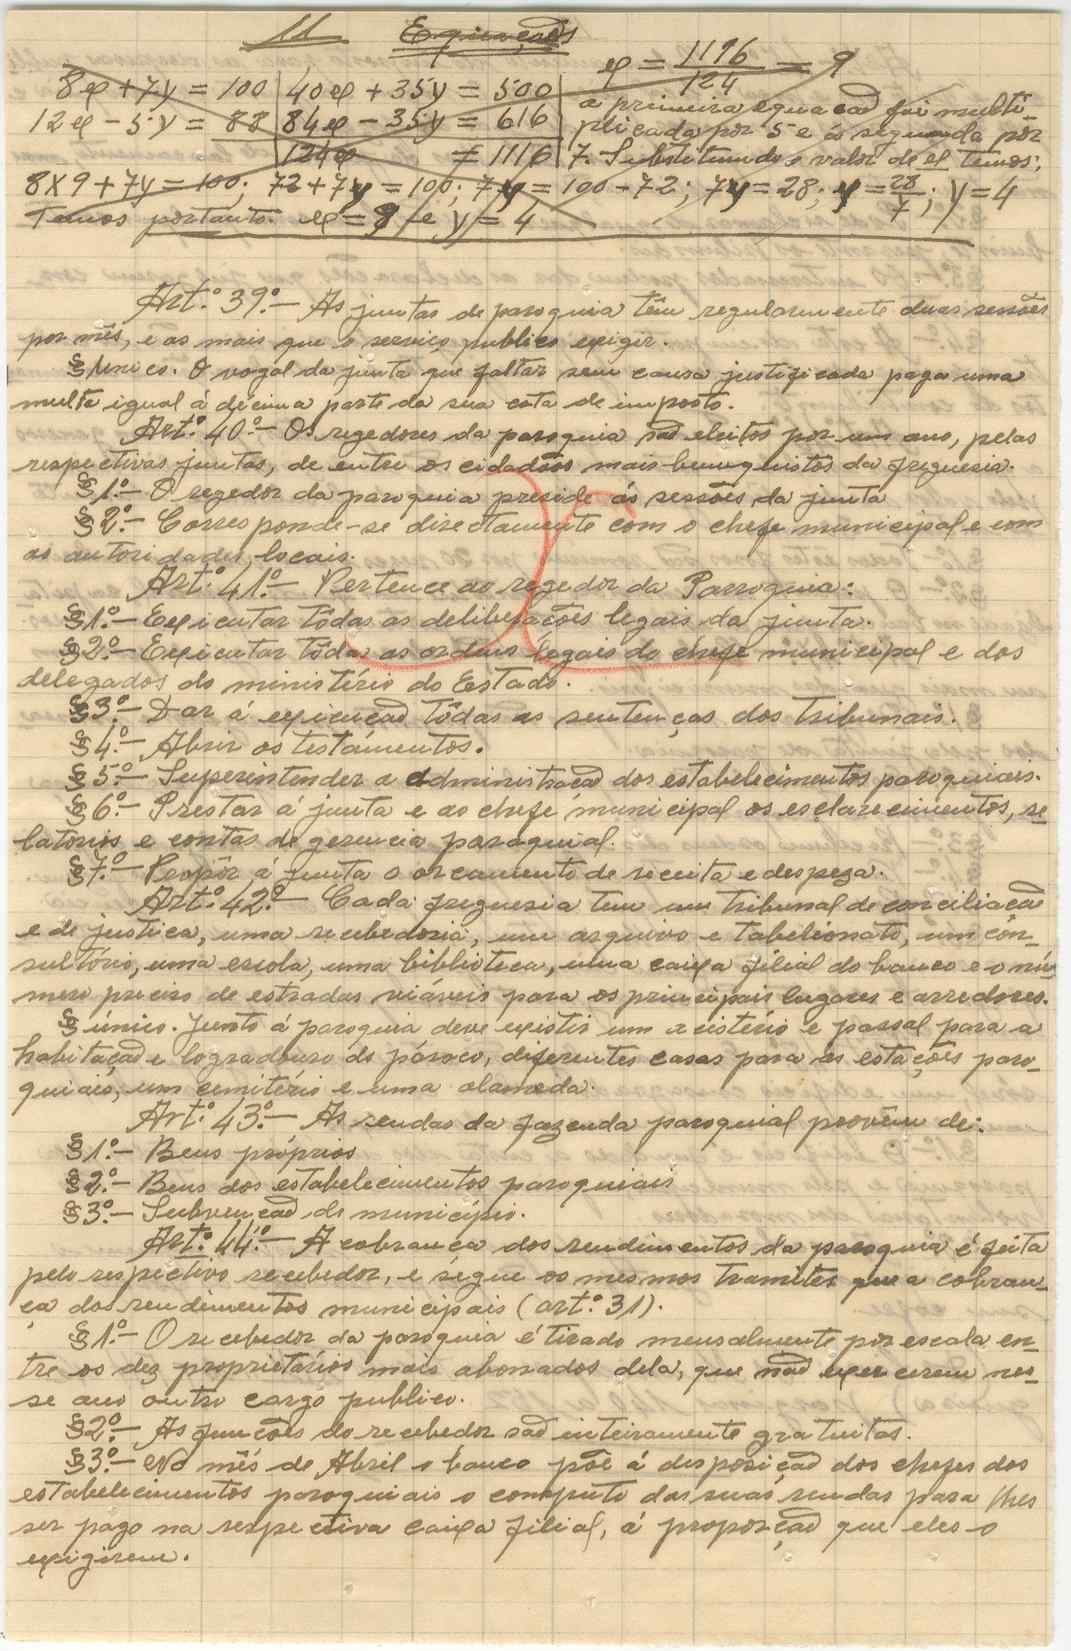 11 Equações
x = 1196/124 = 9
8x + 7y = 100 | 40x + 35y = 500 | a primeira equação foi multi-
12x - 5y = 88 | 84x - 35y = 616 | plicada por 5 e a segunda por
124x = 1116 | 7. Substituindo o valor de x temos:
8x9 + 7y = 100; 72 + 7y = 100; 7y = 100 - 72; 7y = 28; y = 28/7; y = 4
Temos portanto: x = 9 e y = 4
Art.º 39.º — As juntas de paroquia têm regularmente duas sessões
por mês, e as mais que o serviço publico exigir.
§ unico. O vogal da junta que faltar sem causa justificada paga uma
multa igual á décima parte da sua cota de imposto.
Art.º 40.º — Os regedores da paroquia são eleitos por um ano, pelas
respectivas juntas, de entre os cidadãos mais bemquistos da freguesia.
§ 1.º — O regedor da paroquia preside ás sessões da junta
§ 2.º — Corresponde-se directamente com o chefe municipal e com
as autoridades locais.
Art.º 41.º — Pertence ao regedor da Parroquia:
§ 1.º — Executar tôdas as deliberações legais da junta.
§ 2.º — Executar tôda as ordens legais do chefe municipal e dos
delegados do ministério do Estado.
§ 3.º — Dar á execução tôdas as sentenças dos tribunais.
§ 4.º — Abrir os testamentos.
§ 5.º — Superintender a administração dos estabelecimentos paroquiais.
§ 6.º — Prestar á junta e ao chefe municipal os esclarecimentos, re-
latórios e contas de gerencia paroquial.
§ 7.º — Propôr á junta o orcamento de receita e despeza.
Art.º 42.º — Cada freguesia tem um tribunal de conciliação
e de justiça, uma recebedoria, um arquivo e tabelionato, um con-
sultório, uma escola, uma biblioteca, uma caixa filial do banco e o nú-
mero preciso de estradas viáveis para os principais lugares e arredores.
§ único. Junto á paroquia deve existir um presbitério e passal para a
habitação e logradouro do pároco, diferentes casas para as estações paro-
quiais, um cemitério e uma alameda.
Art.º 43.º — As rendas da fazenda paroquial provêm de:
§ 1.º — Bens próprios
§ 2.º — Bens dos estabelecimentos paroquiais
§ 3.º — Subvenção do município.
Art.º 44.º — A cobrança dos rendimentos da paroquia é feita
pelo respectivo recebedor, e ségue os mesmos tramites que a cobran-
ça dos rendimentos municipais (art.º 31).
§ 1.º — O recebedor da paroquia é tirado mensalmente por escala en-
tre os dez proprietários mais abonados dela, que não exercerem nes-
se ano outro cargo publico.
§ 2.º — As funcões do recebedor são inteiramente gratuitas.
§ 3.º — No mês de Abril o banco põe á disposição dos chefes dos
estabelecimentos paroquiais o computo das suas rendas para lhes
ser pago na respectiva caixa filial, á proporção que eles o
exigirem.